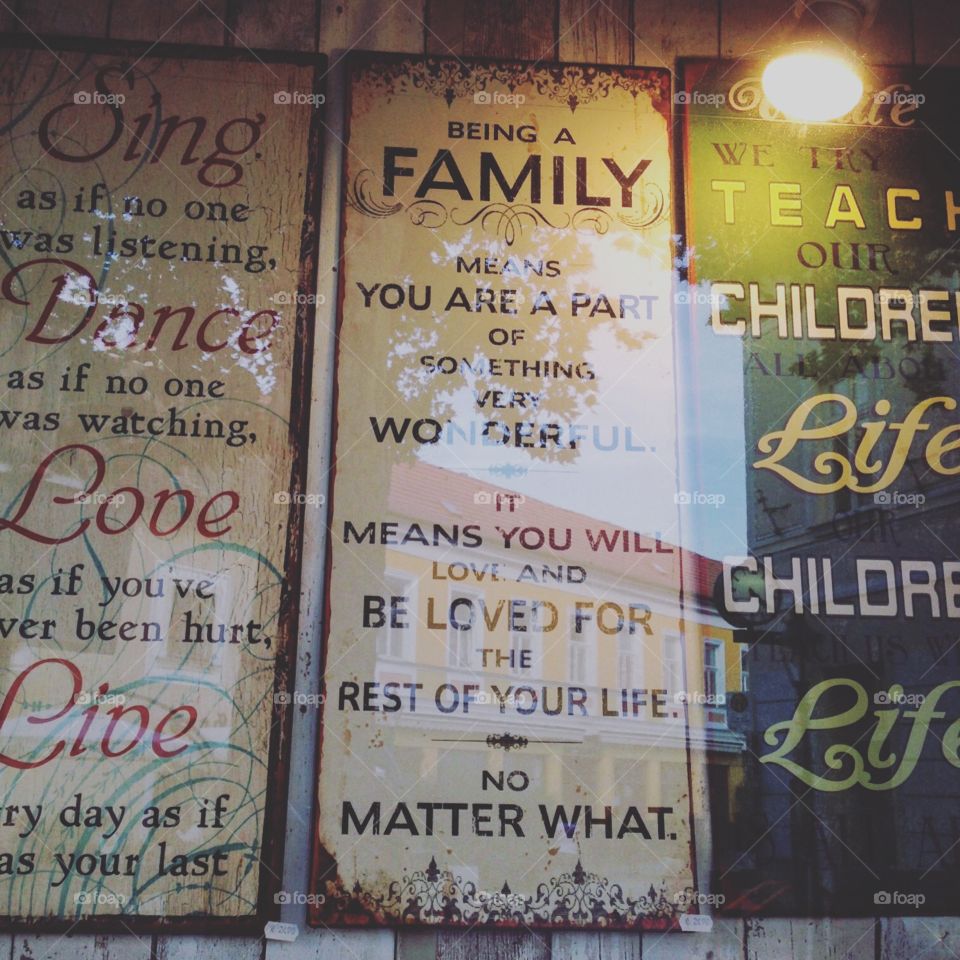 Sing
as if no one
was listening,
Dance
as if no one
was watching,
Love
as if you've
ver been hurt,
Live
ry day as if
as your last
BEING A
FAMILY
MEANS
YOU ARE A PART
OF
SOMETHING
VERY
WONDERFUL.
IT
MEANS YOU WILL
LOVE AND
BE LOVED FOR
THE
REST OF YOUR LIFE.
NO
MATTER WHAT.
WE TRY
TEACH
OUR
CHILDREN
ALL ABOU
Life
OUR
CHILDRE
TEACH US W
Life